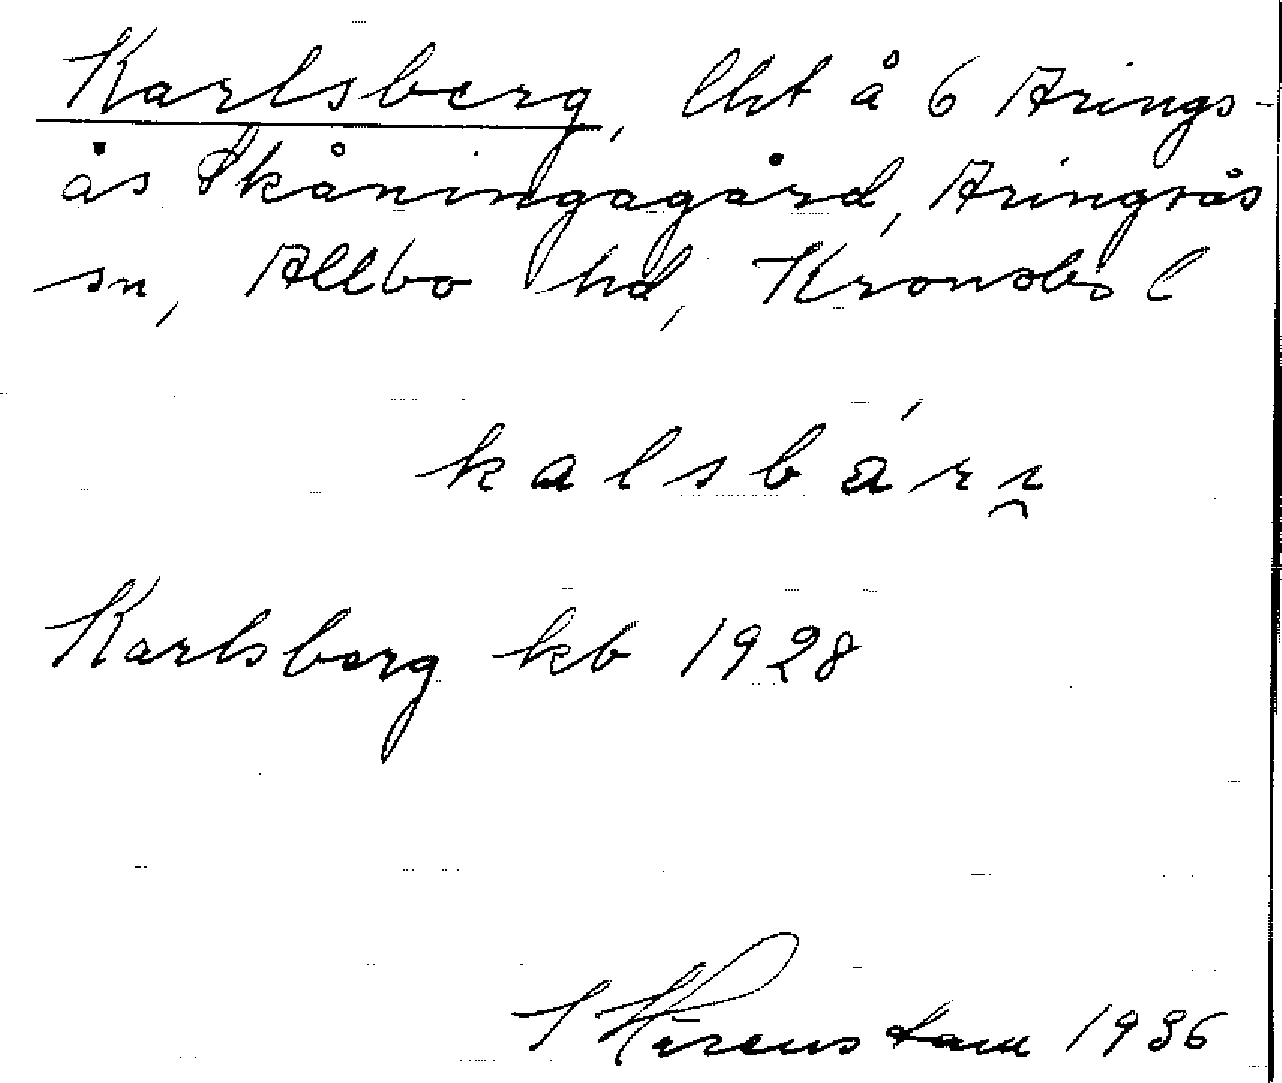 Karlsberg, lht å 6 Arings-
ås Skåningagård, Aringsås
sn, Allbo hd, Kronobs l
kalsbári̯
Karlsberg kb 1928
1936